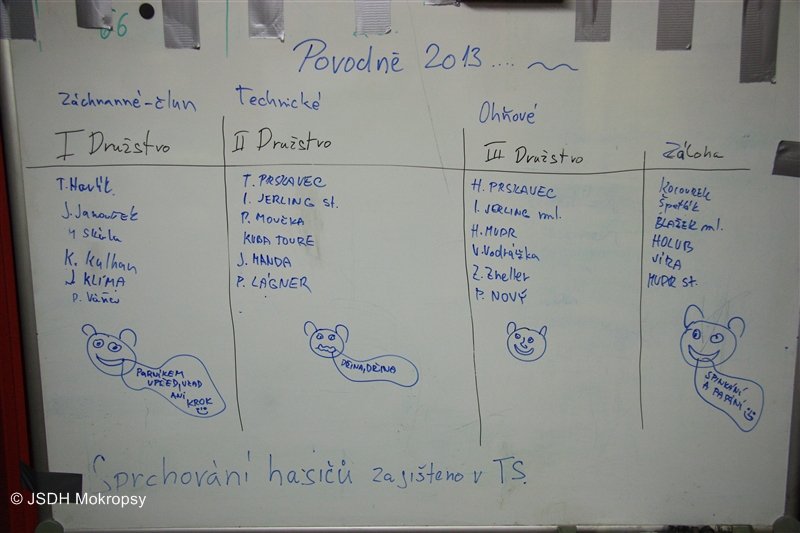 66
Povodně 2013....
Záchranné-člun
Technické
Ohňové
I Družstvo
II Družstvo
III Družstvo
Záloha
T. Havlík
J. Janouček
K. Kulhan
J. KLÍMA
T. PRSKAVEC
I. JERLING st.
P. MOUČKA
KUBA TOURE
J. MANDA
P. LÁGNER
H. PRSKAVEC
I. JERLING ml.
H. MUDR
V. Vodrážka
Z. Zneller
P. NOVÝ
Kocourek
Špaťák
BLAŽEK ml.
HOLUB
VÍRA
MUDR st.
PARNÍKEM
VPŘED, VZAD
ANI
KROK
DŘINA, DŘINA
SPINKÁNÍ
A PAPÁNÍ
Sprchování hasičů zajišteno v TS.
© JSDH Mokropsy